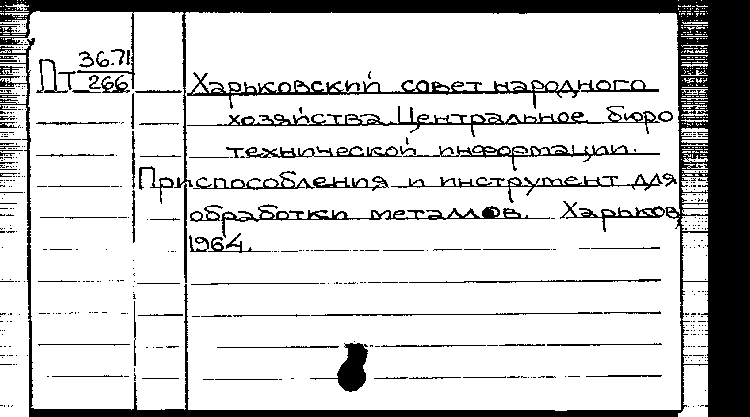 Пт 36.71
266
Харьковский совет народного
хозяйства. Центральное бюро
технической информации.
Приспособления и инструмент для
обработки металлов. Харьков,
1964.